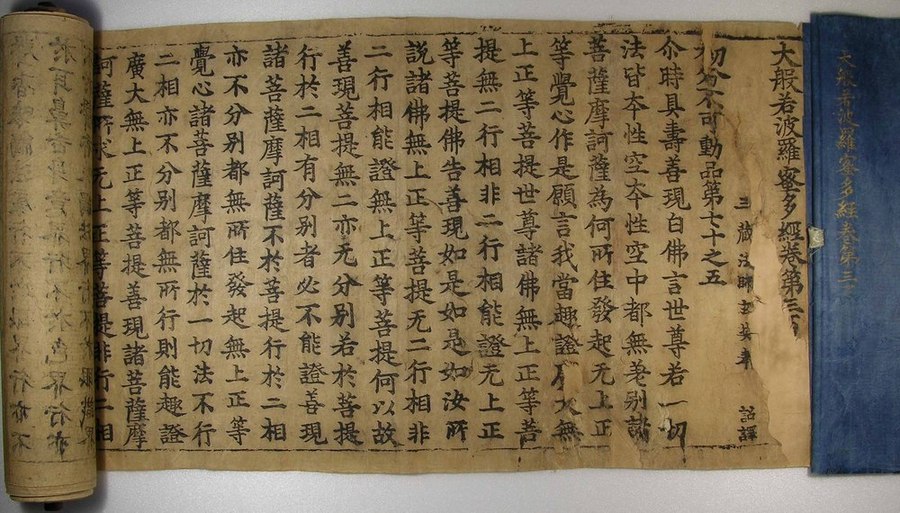 大般若波羅蜜多經卷第三
大般若波羅蜜多經卷第三百
三藏法師玄奘奉 詔譯
初分不可動品第七十之五
尒時具壽善現白佛言世尊若一切
法皆夲性空夲性空中都無差别諸
菩薩摩訶薩為何所住發起无上正
等覺心作是願言我當趣證廣大無
上正等菩提世尊諸佛無上正等菩
提無二行相非二行相能證无上正
等菩提佛告善現如是如是如汝所
說諸佛無上正等菩提无二行相非
二行相能證無上正等菩提何以故
善現菩提無二亦无分别若於菩提
行於二相有分别者必不能證善現
諸菩薩摩訶薩不於菩提行於二相
亦不分别都無所住發起無上正等
覺心諸菩薩摩訶薩於一切法不行
二相亦不分别都無所行則能趣證
廣大無上正等菩提善現諸菩薩摩
訶薩所求无上正等菩提非行二相